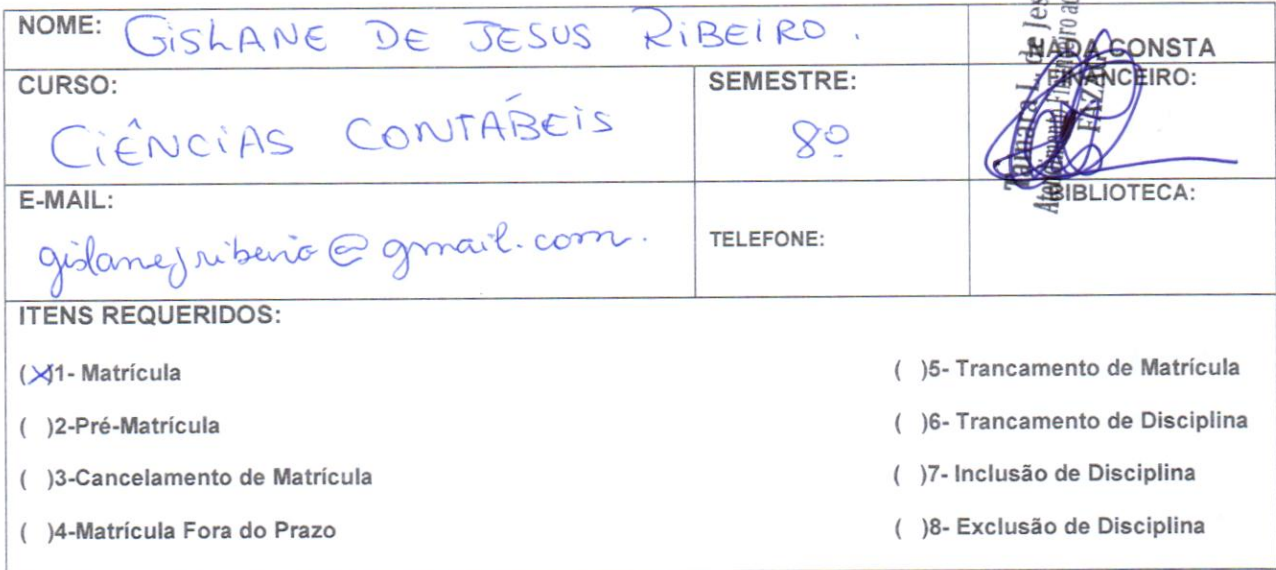 NOME: GISLANE DE JESUS RIBEIRO.
NADA CONSTA
CURSO:
CIÊNCIAS CONTÁBEIS
SEMESTRE:
8º
FINANCEIRO:
E-MAIL:
gislanejribeiro@gmail.com.
TELEFONE:
BIBLIOTECA:
ITENS REQUERIDOS:
(X)1- Matrícula
( )2-Pré-Matrícula
( )3-Cancelamento de Matrícula
( )4-Matrícula Fora do Prazo
( )5- Trancamento de Matrícula
( )6- Trancamento de Disciplina
( )7- Inclusão de Disciplina
( )8- Exclusão de Disciplina